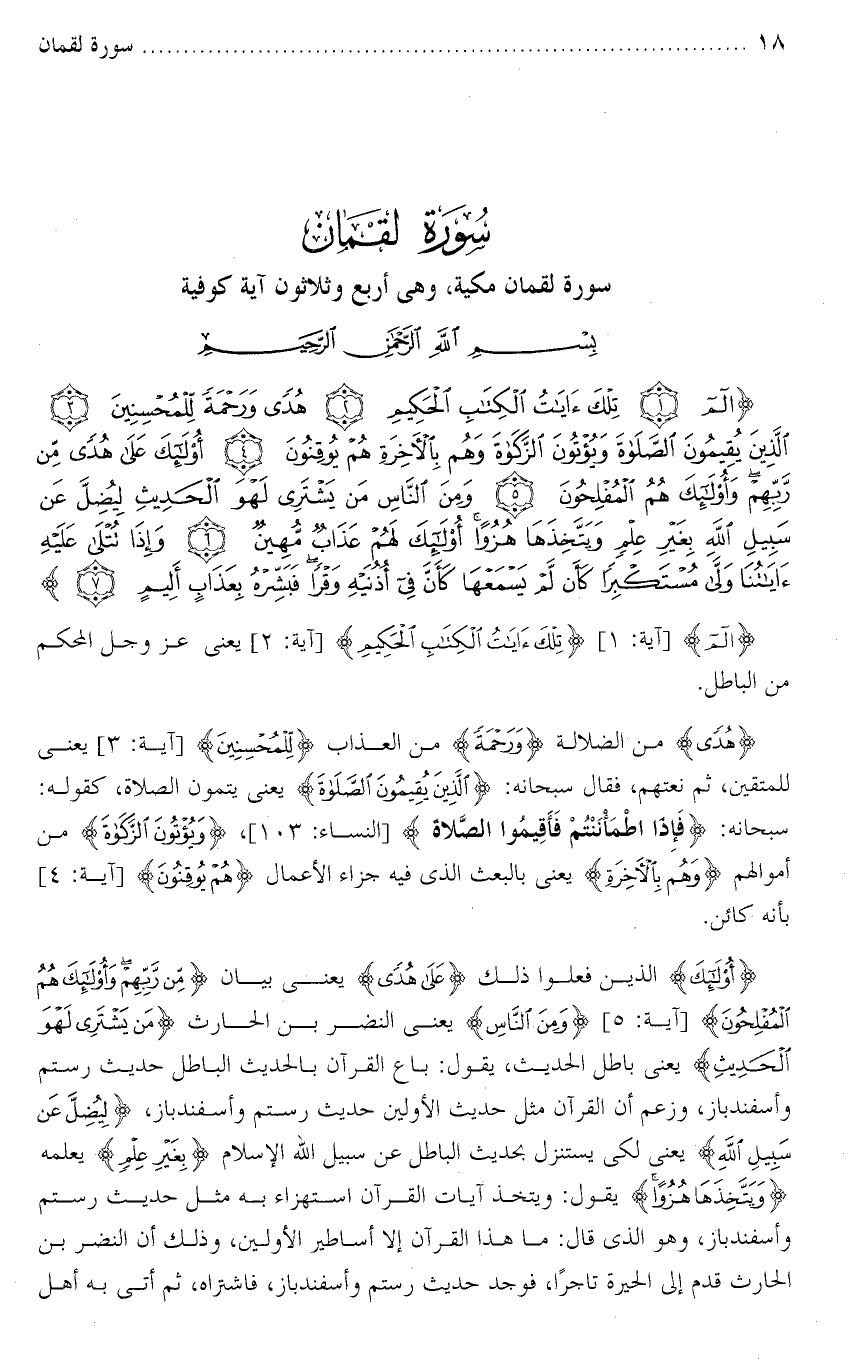 ١٨ ........................................................................ سورة لقمان
سُورَةُ لُقْمَانَ
سورة لقمان مكية، وهى أربع وثلاثون آية كوفية
بِسْمِ ٱللَّهِ ٱلرَّحْمَٰنِ ٱلرَّحِيمِ
﴿الٓمٓ ۝١ تِلْكَ ءَايَٰتُ ٱلْكِتَٰبِ ٱلْحَكِيمِ ۝٢ هُدًى وَرَحْمَةً لِّلْمُحْسِنِينَ ۝٣
ٱلَّذِينَ يُقِيمُونَ ٱلصَّلَوٰةَ وَيُؤْتُونَ ٱلزَّكَوٰةَ وَهُم بِٱلْأَخِرَةِ هُمْ يُوقِنُونَ ۝٤ أُوْلَٰٓئِكَ عَلَىٰ هُدًى مِّن
رَّبِّهِمْ ۖ وَأُوْلَٰٓئِكَ هُمُ ٱلْمُفْلِحُونَ ۝٥ وَمِنَ ٱلنَّاسِ مَن يَشْتَرِى لَهْوَ ٱلْحَدِيثِ لِيُضِلَّ عَن
سَبِيلِ ٱللَّهِ بِغَيْرِ عِلْمٍ وَيَتَّخِذَهَا هُزُوًا ۚ أُوْلَٰٓئِكَ لَهُمْ عَذَابٌ مُّهِينٌ ۝٦ وَإِذَا تُتْلَىٰ عَلَيْهِ
ءَايَٰتُنَا وَلَّىٰ مُسْتَكْبِرًا كَأَن لَّمْ يَسْمَعْهَا كَأَنَّ فِىٓ أُذُنَيْهِ وَقْرًا ۖ فَبَشِّرْهُ بِعَذَابٍ أَلِيمٍ ۝٧ ﴾
﴿الٓمٓ﴾ [آية: ١] ﴿تِلْكَ ءَايَٰتُ ٱلْكِتَٰبِ ٱلْحَكِيمِ﴾ [آية: ٢] يعنى عز وجل المحكم
من الباطل.
﴿هُدًى﴾ من الضلالة ﴿وَرَحْمَةً﴾ من العذاب ﴿لِّلْمُحْسِنِينَ﴾ [آية: ٣] يعنى
للمتقين، ثم نعتهم، فقال سبحانه: ﴿ٱلَّذِينَ يُقِيمُونَ ٱلصَّلَوٰةَ﴾ يعنى يتمون الصلاة، كقوله:
سبحانه: ﴿فَإِذَا اطْمَأْنَنْتُمْ فَأَقِيمُوا الصَّلاةَ ﴾ [النساء: ١٠٣]، ﴿وَيُؤْتُونَ ٱلزَّكَوٰةَ﴾ من
أموالهم ﴿وَهُم بِٱلْأَخِرَةِ﴾ يعنى بالبعث الذى فيه جزاء الأعمال ﴿هُمْ يُوقِنُونَ﴾ [آية: ٤]
بأنه كائن.
﴿أُوْلَٰٓئِكَ﴾ الذين فعلوا ذلك ﴿عَلَىٰ هُدًى﴾ يعنى بيان ﴿مِّن رَّبِّهِمْ ۖ وَأُوْلَٰٓئِكَ هُمُ
ٱلْمُفْلِحُونَ﴾ [آية: ٥] ﴿وَمِنَ ٱلنَّاسِ﴾ يعنى النضر بن الحارث ﴿مَن يَشْتَرِى لَهْوَ
ٱلْحَدِيثِ﴾ يعنى باطل الحديث، يقول: باع القرآن بالحديث الباطل حديث رستم
وأسفندباز، وزعم أن القرآن مثل حديث الأولين حديث رستم وأسفندباز، ﴿لِيُضِلَّ عَن
سَبِيلِ ٱللَّهِ﴾ يعنى لكى يستنزل بحديث الباطل عن سبيل الله الإسلام ﴿بِغَيْرِ عِلْمٍ﴾ يعلمه
﴿وَيَتَّخِذَهَا هُزُوًا ۚ﴾ يقول: ويتخذ آيات القرآن استهزاء به مثل حديث رستم
وأسفندباز، وهو الذى قال: ما هذا القرآن إلا أساطير الأولين، وذلك أن النضر بن
الحارث قدم إلى الحيرة تاجرًا، فوجد حديث رستم وأسفندباز، فاشتراه، ثم أتى به أهل